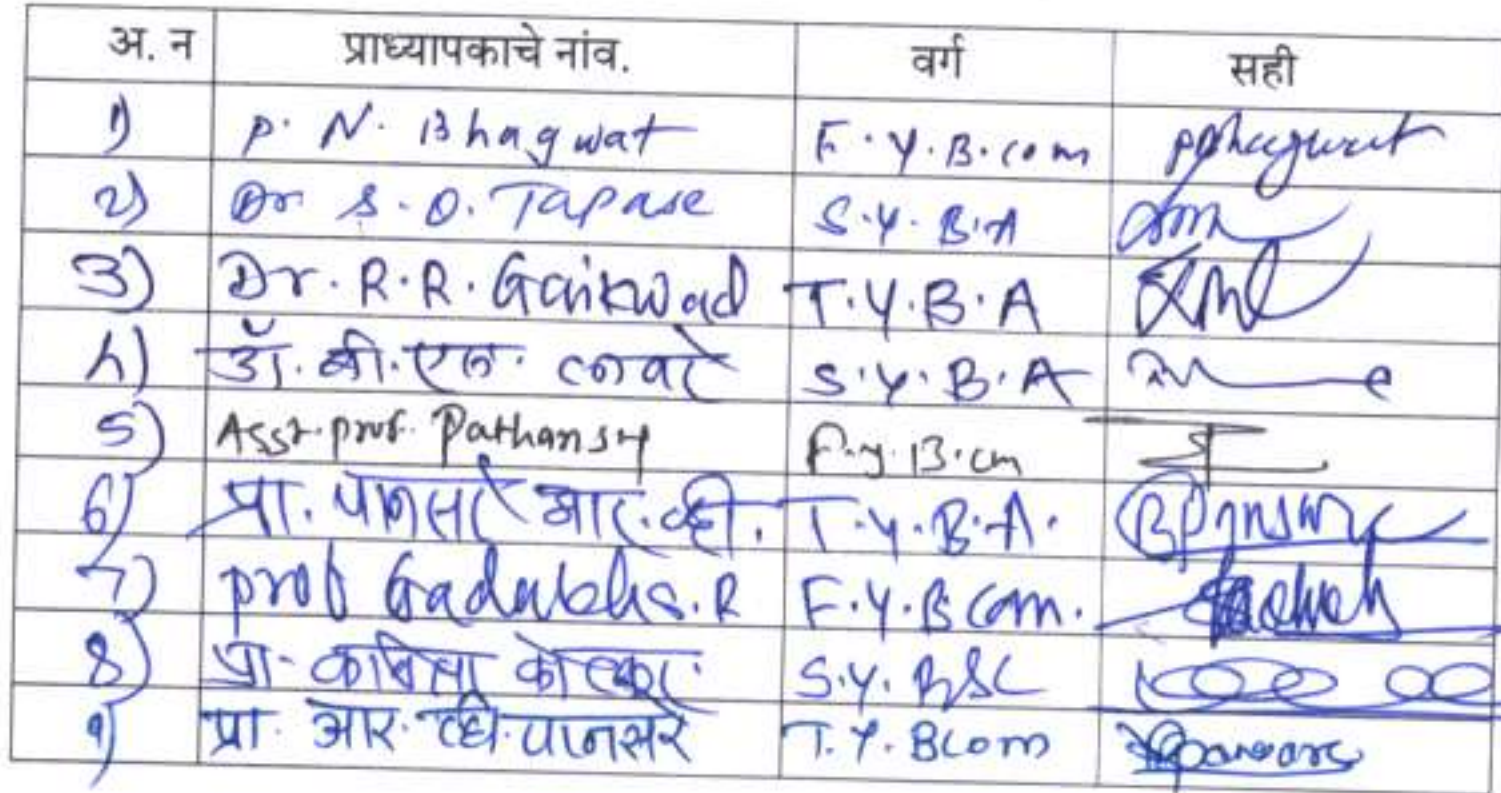 अ. न प्राध्यापकाचे नांव. वर्ग सही
1) P. N. Bhagwat F.Y.B.com ppbhagwat
2) Dr S.D. Tapase S.Y.B.A
3) Dr. R.R. Gaikwad T.Y.B.A
4) डॉ. बी. एल. S.Y.B.A
5) Asst. prof. Pathan F.y.B.cm
6) प्रा. पानसरे आर. व्ही. T.Y.B.A.
7) prof F.Y.B com.
8) प्रा. कविता S.Y. BSC
9) प्रा. आर. व्ही. पानसरे T.Y. Bcom